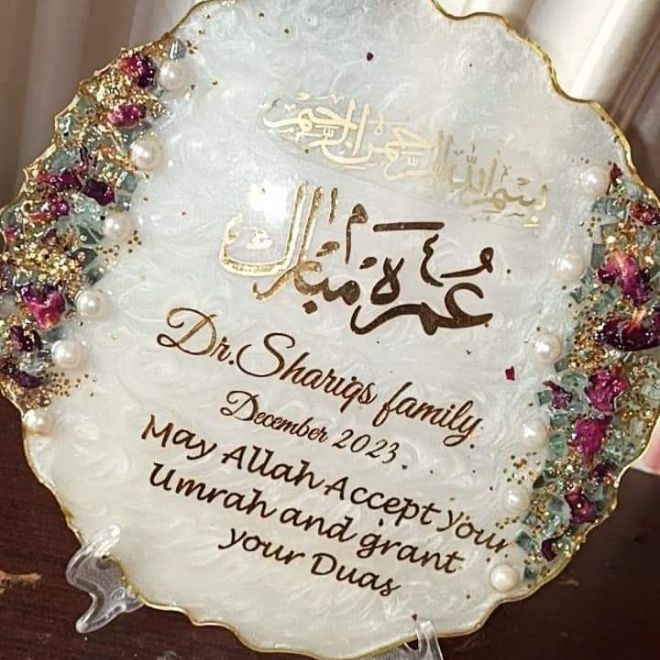 بسم الله الرحمن الرحيم
عمرة مبارك
Dr.Shariqs family
December 2023.
May Allah Accept Your
Umrah and grant
your Duas